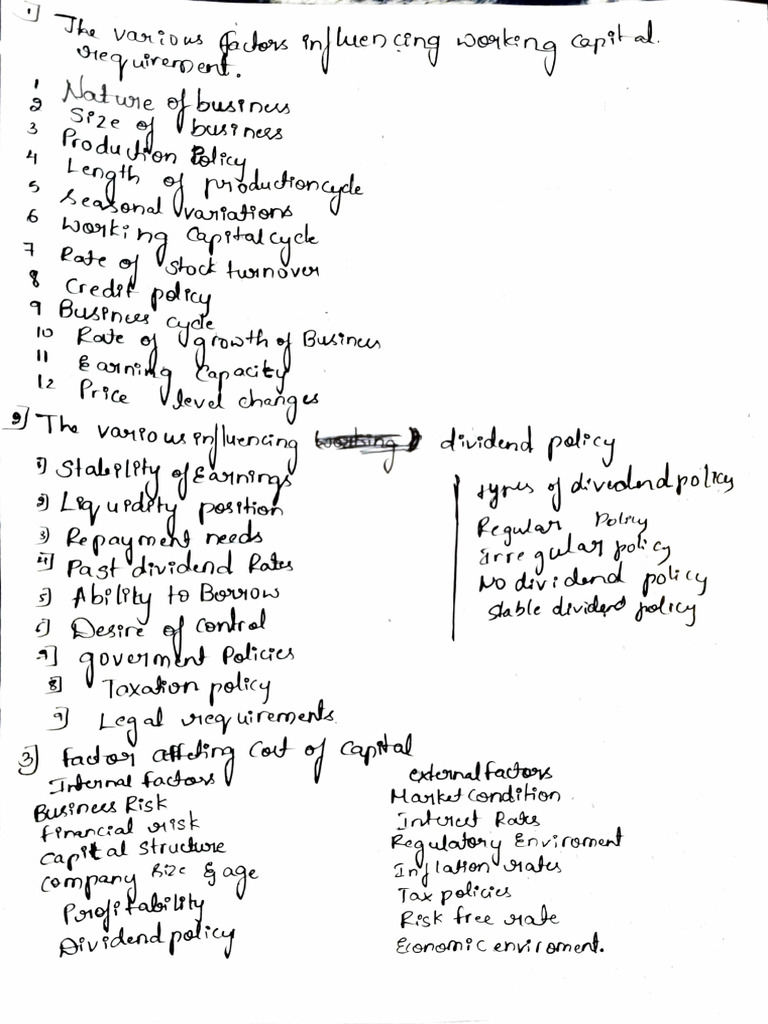 1] The various factors influencing working capital.
requirement.
1 Nature of business
2 Size of business
3 Production Policy
4 Length of production cycle
5 Seasonal variations
6 Working Capital cycle
7 Rate of stock turnover
8 Credit policy
9 Business cycle
10 Rate of growth of Business
11 Earning Capacity
12 Price level changes
2] The various influencing dividend policy
1] Stability of Earnings
2] Liquidity position
3] Repayment needs
4] Past dividend Rates
5] Ability to Borrow
6] Desire of control
7] goverment Policies
8] Taxation policy
9] Legal requirements
types of dividend policy
Regular Policy
Irregular policy
No dividend policy
stable dividend policy
3] factor affeting cost of capital
Internal factors
Business Risk
financial risk
capital structure
company size & age
Profitability
Dividend policy
external factors
Market condition
Interest Rates
Regulatory Enviroment
Inflation rates
Tax policies
Risk free rate
Economic enviroment.